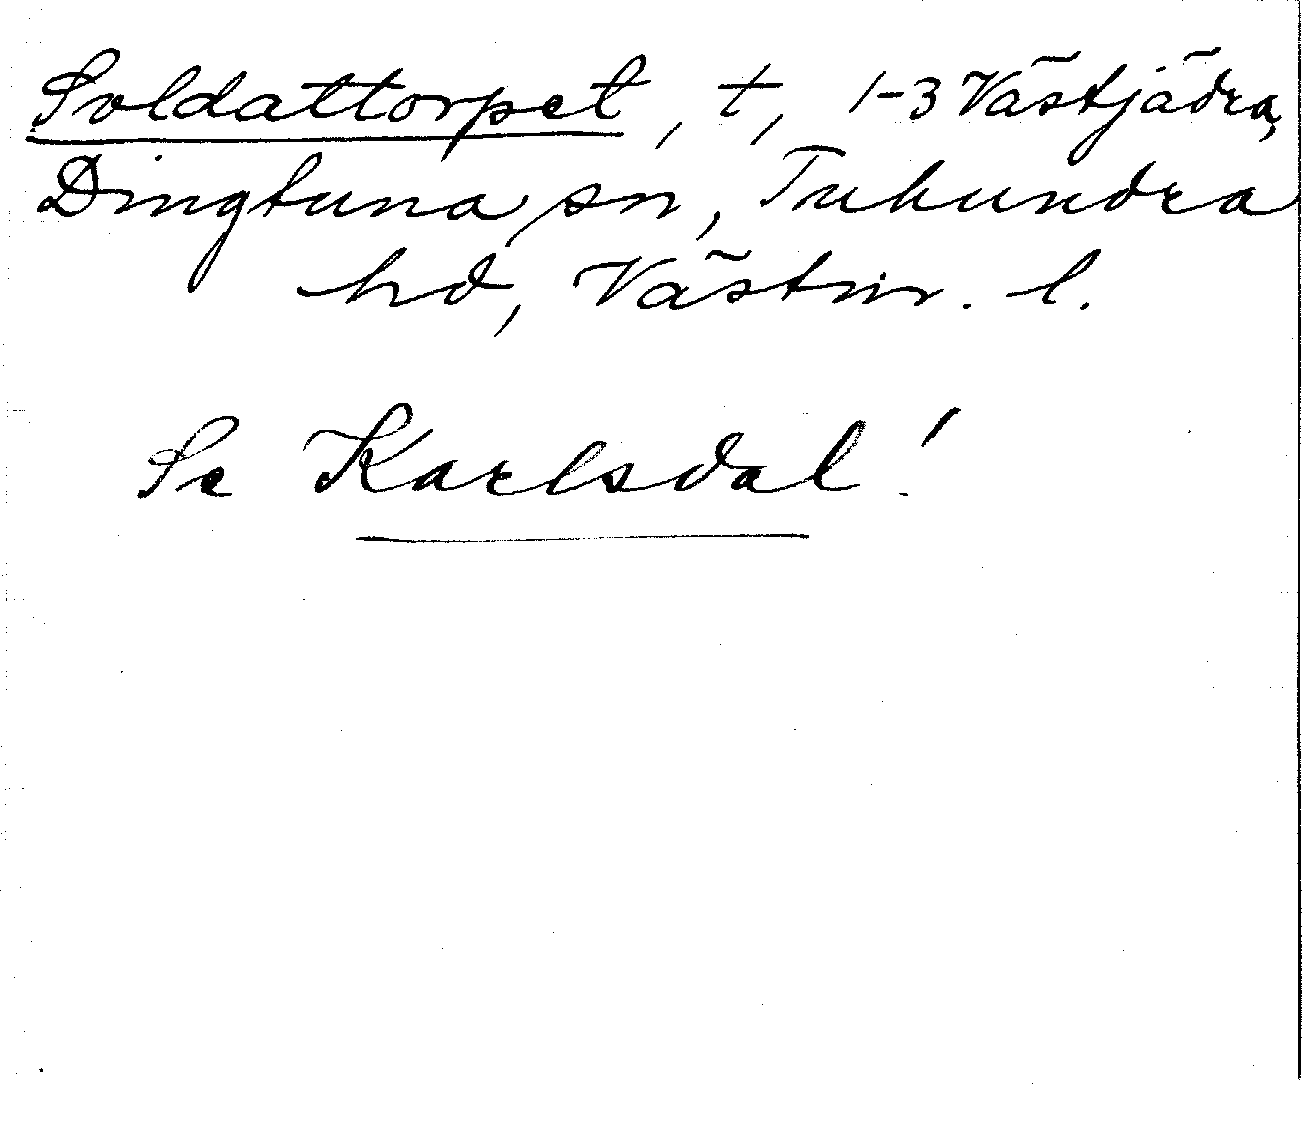 Soldattorpet, t, 1-3 Västjädra,
Dingtuna sn, Tuhundra
hd, Västm. l.
Se Karlsdal!